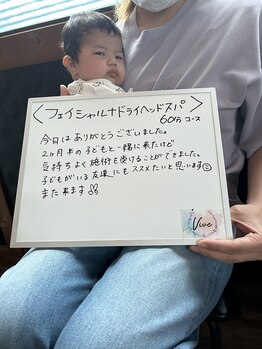 〈フェイシャル+ドライヘッドスパ〉
60分コース
今日はありがとうございました。
2ヶ月半の子どもと一緒に来たけど
気持ちよく施術を受けることができました。
子どもがいる友達にもススメたいと思います
また来ます
Vive